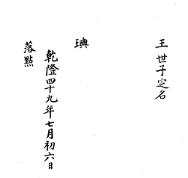 王世子定名
㬀
乾隆四十九年七月初六日
落點